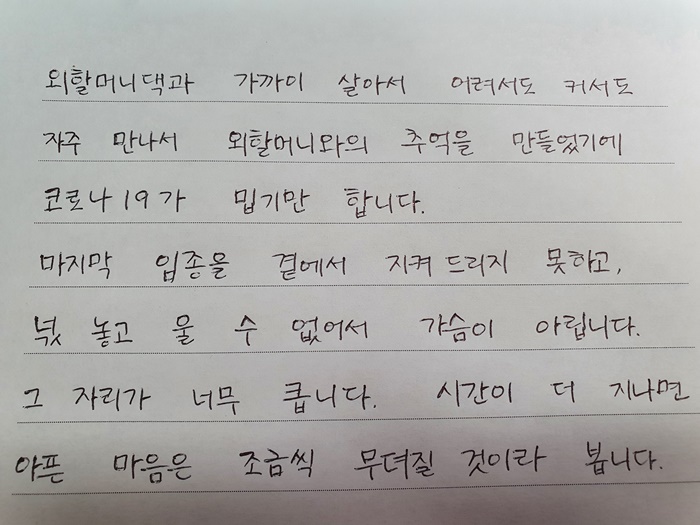 외할머니댁과 가까이 살아서 어려서도 커서도
자주 만나서 외할머니와의 추억을 만들었기에
코로나19가 밉기만 합니다.
마지막 임종을 곁에서 지켜 드리지 못하고,
넋 놓고 울 수 없어서 가슴이 아립니다.
그 자리가 너무 큽니다. 시간이 더 지나면
아픈 마음은 조금씩 무뎌질 것이라 봅니다.